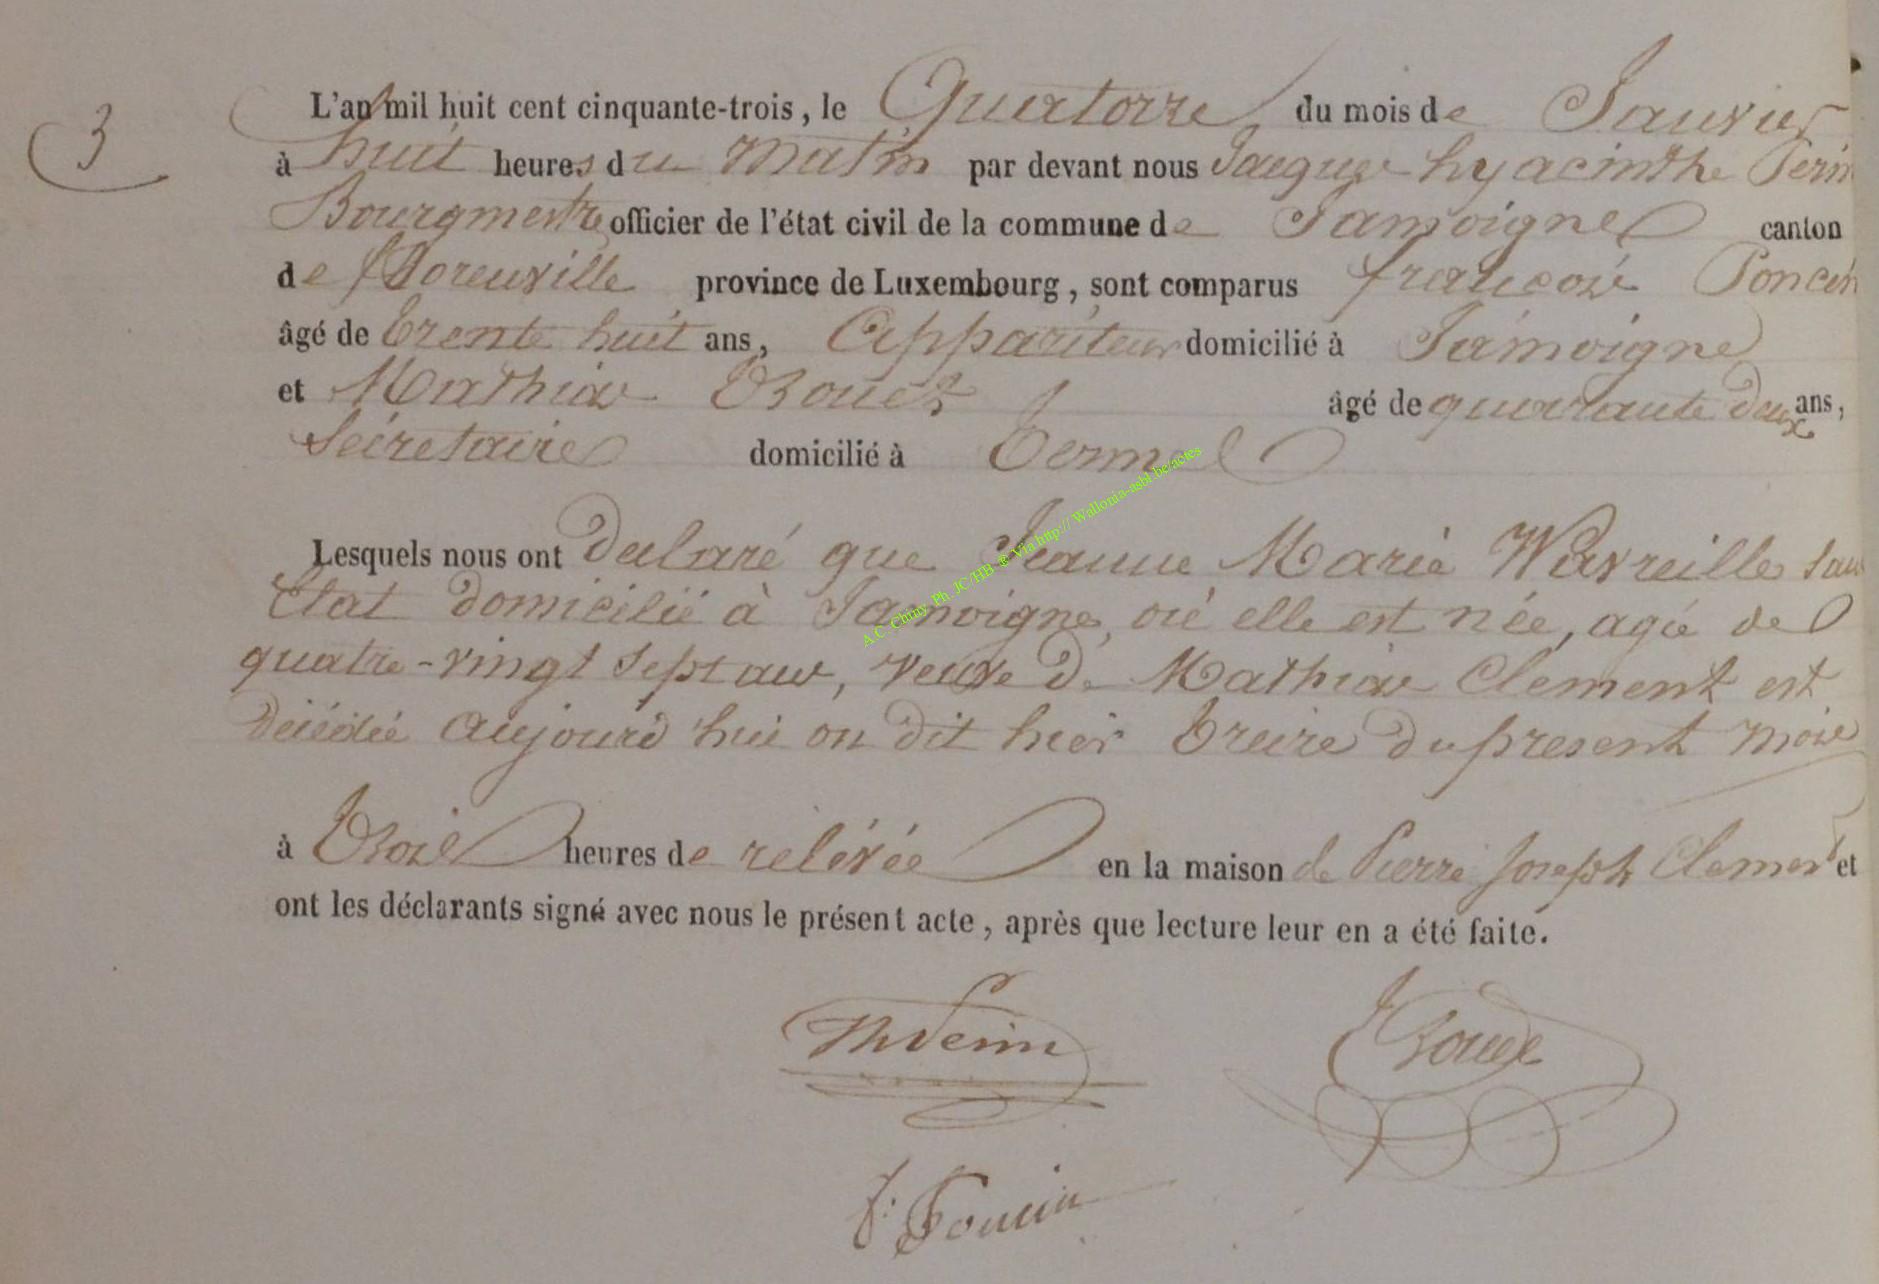 3
L'an mil huit cent cinquante-trois, le Quatorze du mois de Janvier
à huit heures du matin par devant nous Jacques hyacinthe Perin
Bourgmestre officier de l'état civil de la commune de Jamoigne canton
de floreuville province de Luxembourg, sont comparus françois Poncin
âgé de trente huit ans, Appariteur domicilié à Jamoigne
et Mathias âgé de quarante deux ans,
Sécretaire domicilié à Termes
Lesquels nous ont déclaré que Jeanne Marie Wavreille sans
Etat domicilié à Jamoigne, où elle est née, agée de
quatre-vingt sept ans, veuve de Mathias Clement est
décédée aujourd'hui on dit hier treize du present mois
à trois heures de rélévée en la maison de Pierre Joseph Clement et
ont les déclarants signé avec nous le présent acte, après que lecture leur en a été faite.
A.C. Chiny Ph. JC/HB ® Via http:// Wallonia-asbl.be/actes
Perin
F. Poncin